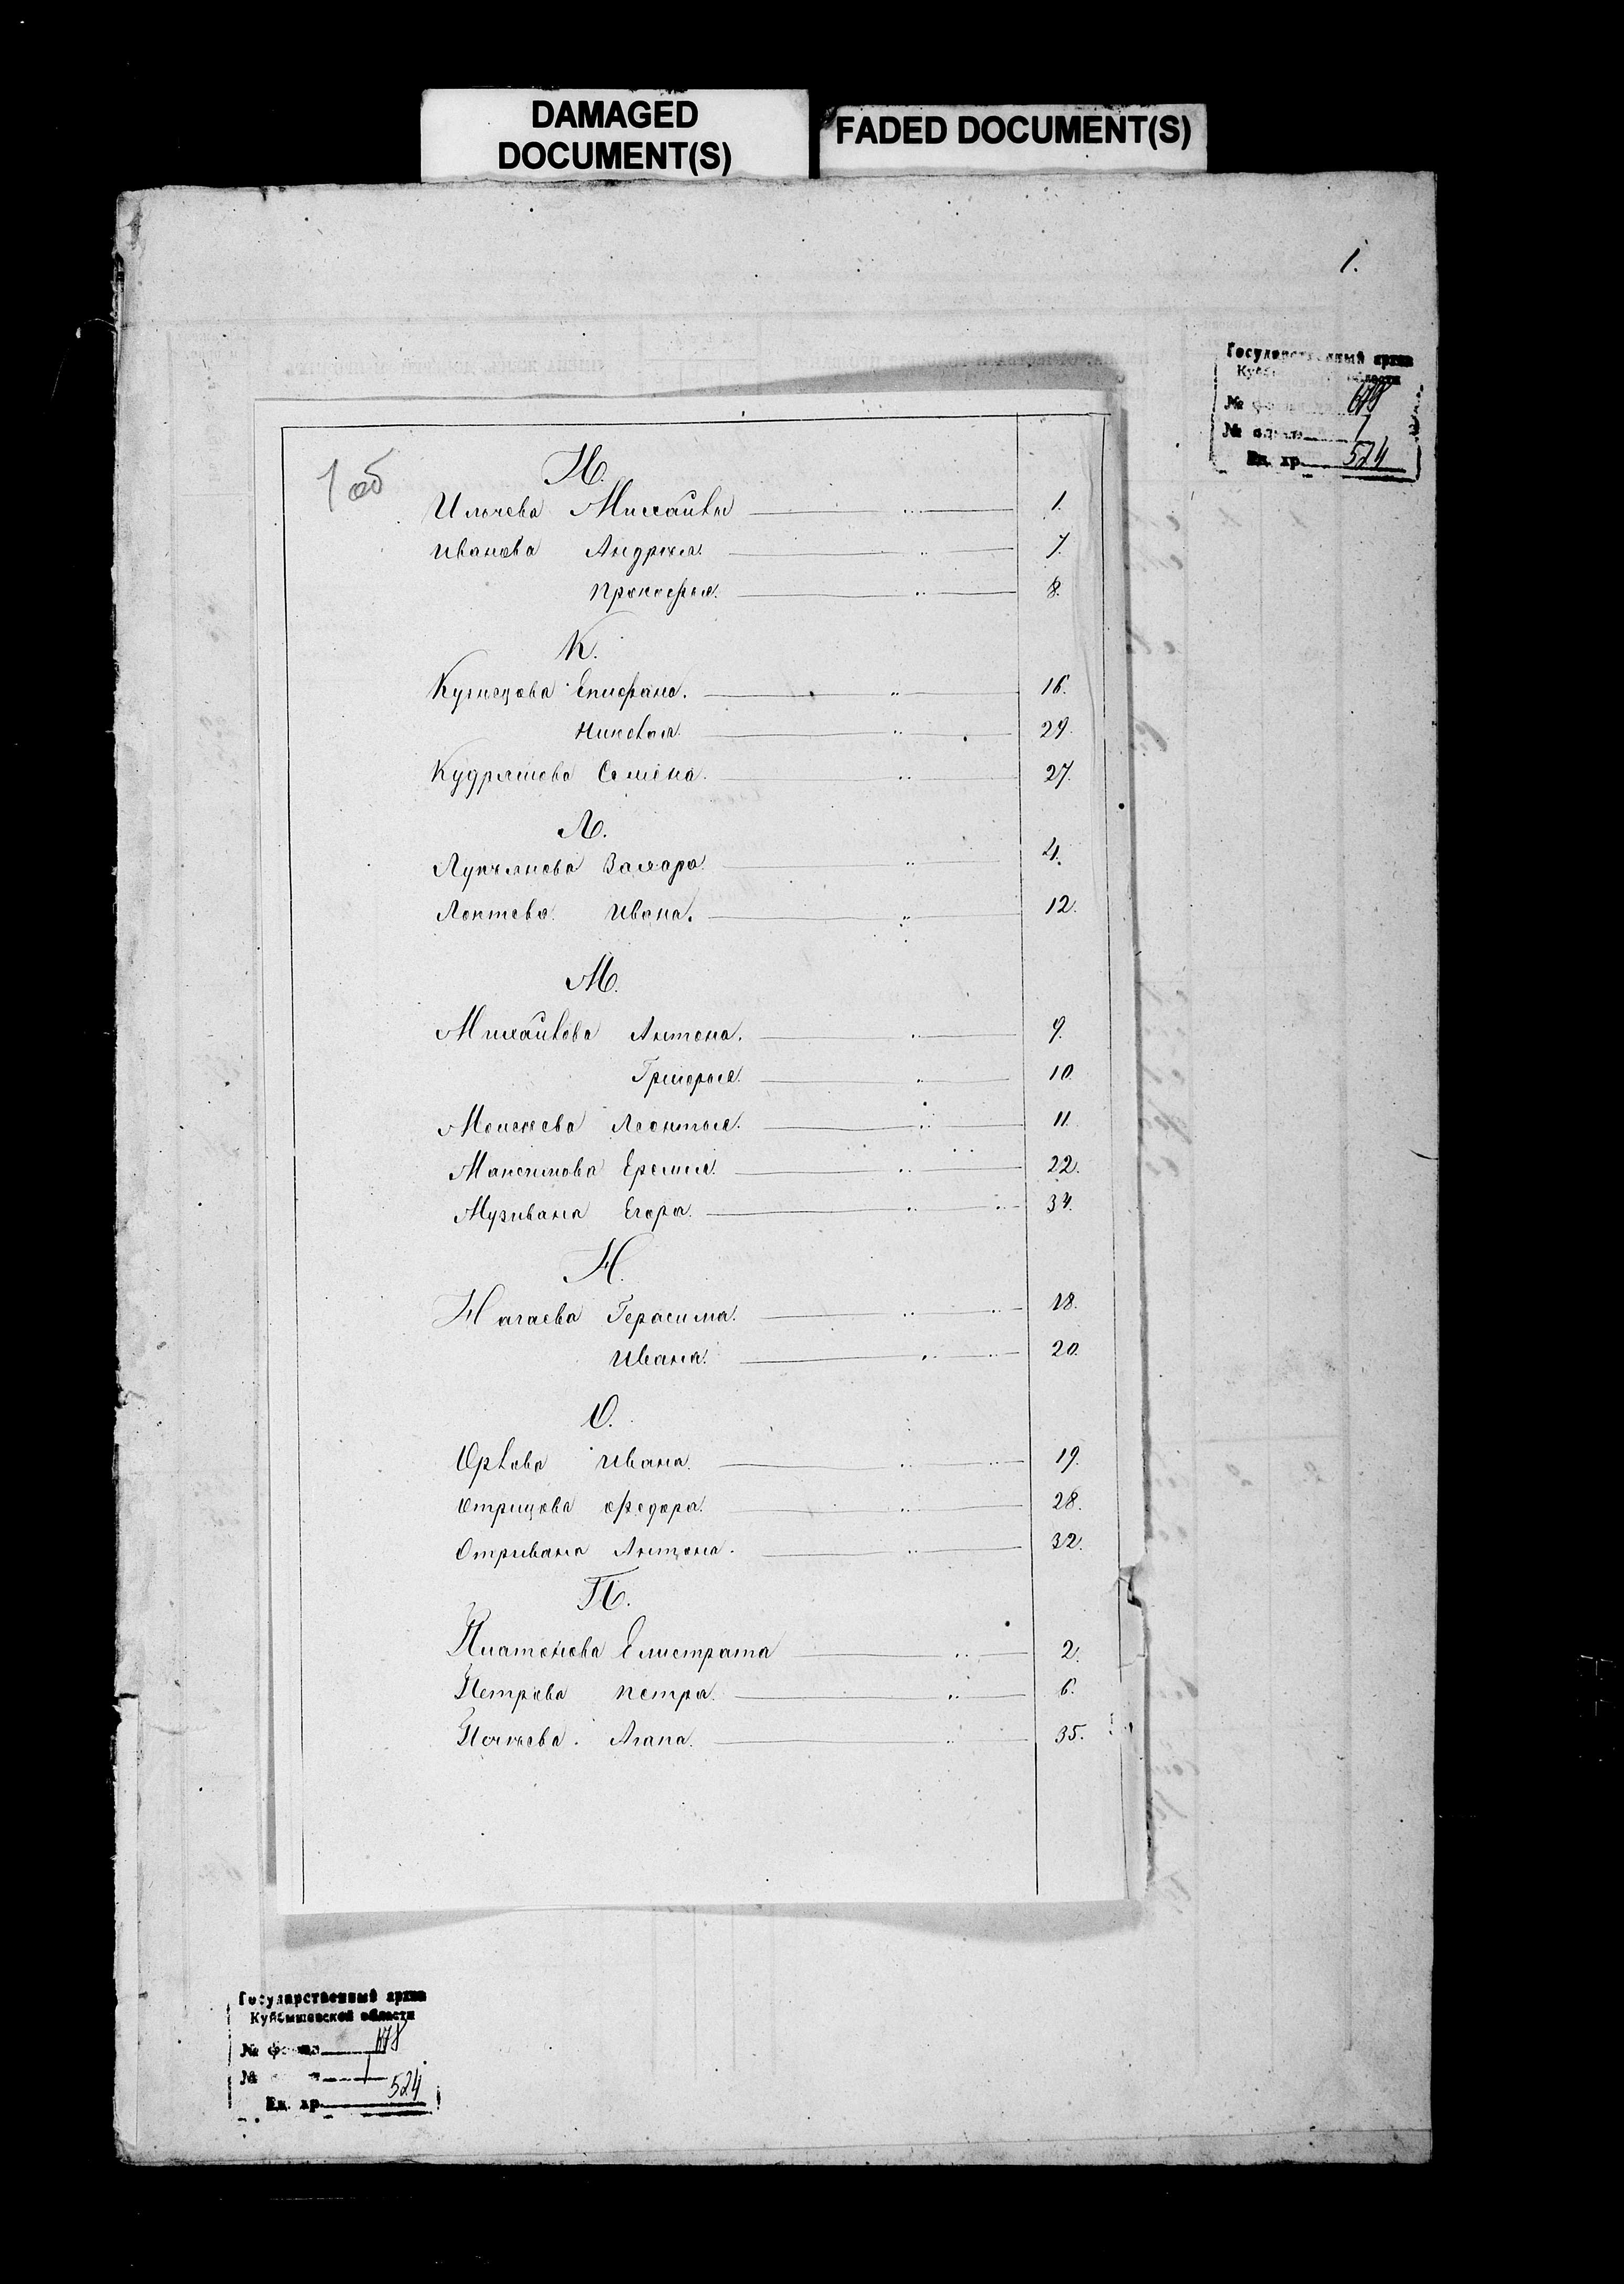 DAMAGED
DOCUMENT(S)
FADED DOCUMENT(S)
1.
Государственный архив
области
№ 678
№ 1
Ед. хр. 524
1 об
И.
Ильичева Михайлы 1.
Иванова Андрея. 7.
Прокофья. 8.
К.
Кузнецова Епифана. 16.
Николая. 29.
Кудряшова Семена. 27.
Л.
Лукьянова Захара. 4.
Локтева Ивана. 12.
М.
Михайлова Антона. 9.
Григорья. 10.
Моисеева Леонтья. 11.
Максимова Еремея. 22.
Егора. 34.
Н.
Нагаева Герасима. 18.
Ивана. 20.
О.
Орлова Ивана. 19.
Отрицова Федора. 28.
Отривана Антона. 32.
П.
Платонова Елистрата 2.
Петрова Петра. 6.
Агапа. 35.
Государственный архив
Куйбышевской области
№ фонда 678
№ 1
Ед. хр. 524